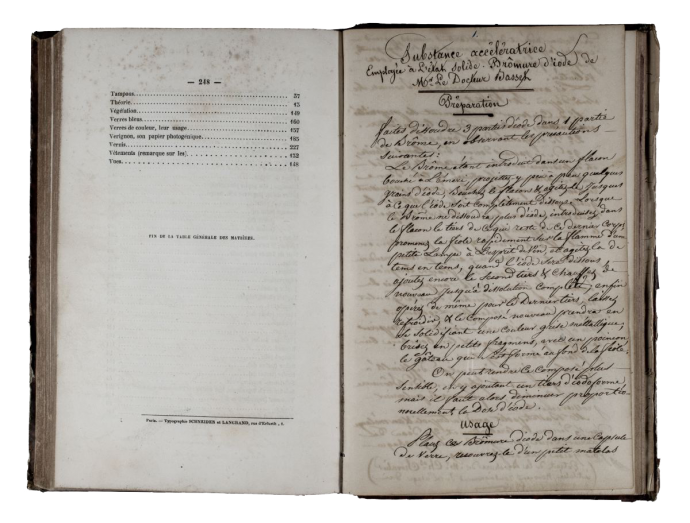 — 248 —
Tampons 57
Théorie 15
Végétation 149
Verres bleus 160
Verres de couleur, leur usage 157
Verignon, son papier photogénique 185
Vernis 227
Vêtements (remarque sur les) 152
Vues 148
FIN DE LA TABLE GÉNÉRALE DES MATIÈRES.
Paris. — Typographie SCHNEIDER et LANGRAND, rue d'Erfurth, 1.
Substance accélératrice
Employée à L'état Solide. Brômure d'iode de
Mr. Le Docteur
Préparation
faites dissoudre 3 parties d'iode dans 1 partie
de Brôme, en observant les précautions
suivantes:
Le Brôme étant introduit dans un flacon
bouché à L'émeri, projettez y peu à peu quelques
grains d'iode, Bouchez le flacon & agitez le jusques
à ce que l'iode soit complètement dissous. Lorsque
le Brôme ne dissoudra plus d'iode, introduisez dans
le flacon le tiers de ce qui reste de ce dernier Corps
promenez la fiole rapidement sur la flamme d'une
petite Lampe à L'esprit de Vin, et agitez la de
tems en tems, quand l'iode sera dissous
ajoutez encore le Second tiers & Chauffez de
nouveau jusqu'à dissolution Complète, enfin
opérez de même pour le Dernier tiers, laissez
refroidir, & le Composé nouveau prendra en
se Solidifiant une Couleur grise métallique,
brisez en petits fragmens, avec un poinçon,
le gâteau qui a formé au fond de la fiole.
On peut rendre le Composé plus
Sensible, en y ajoutant un tiers d'iodoforme,
mais il faut alors diminuer proportion
nellement la Dose d'iode.
Usage
Placez ce Brômure d'iode dans une Capsule
de Verre, recouvrez le d'un petit matelas